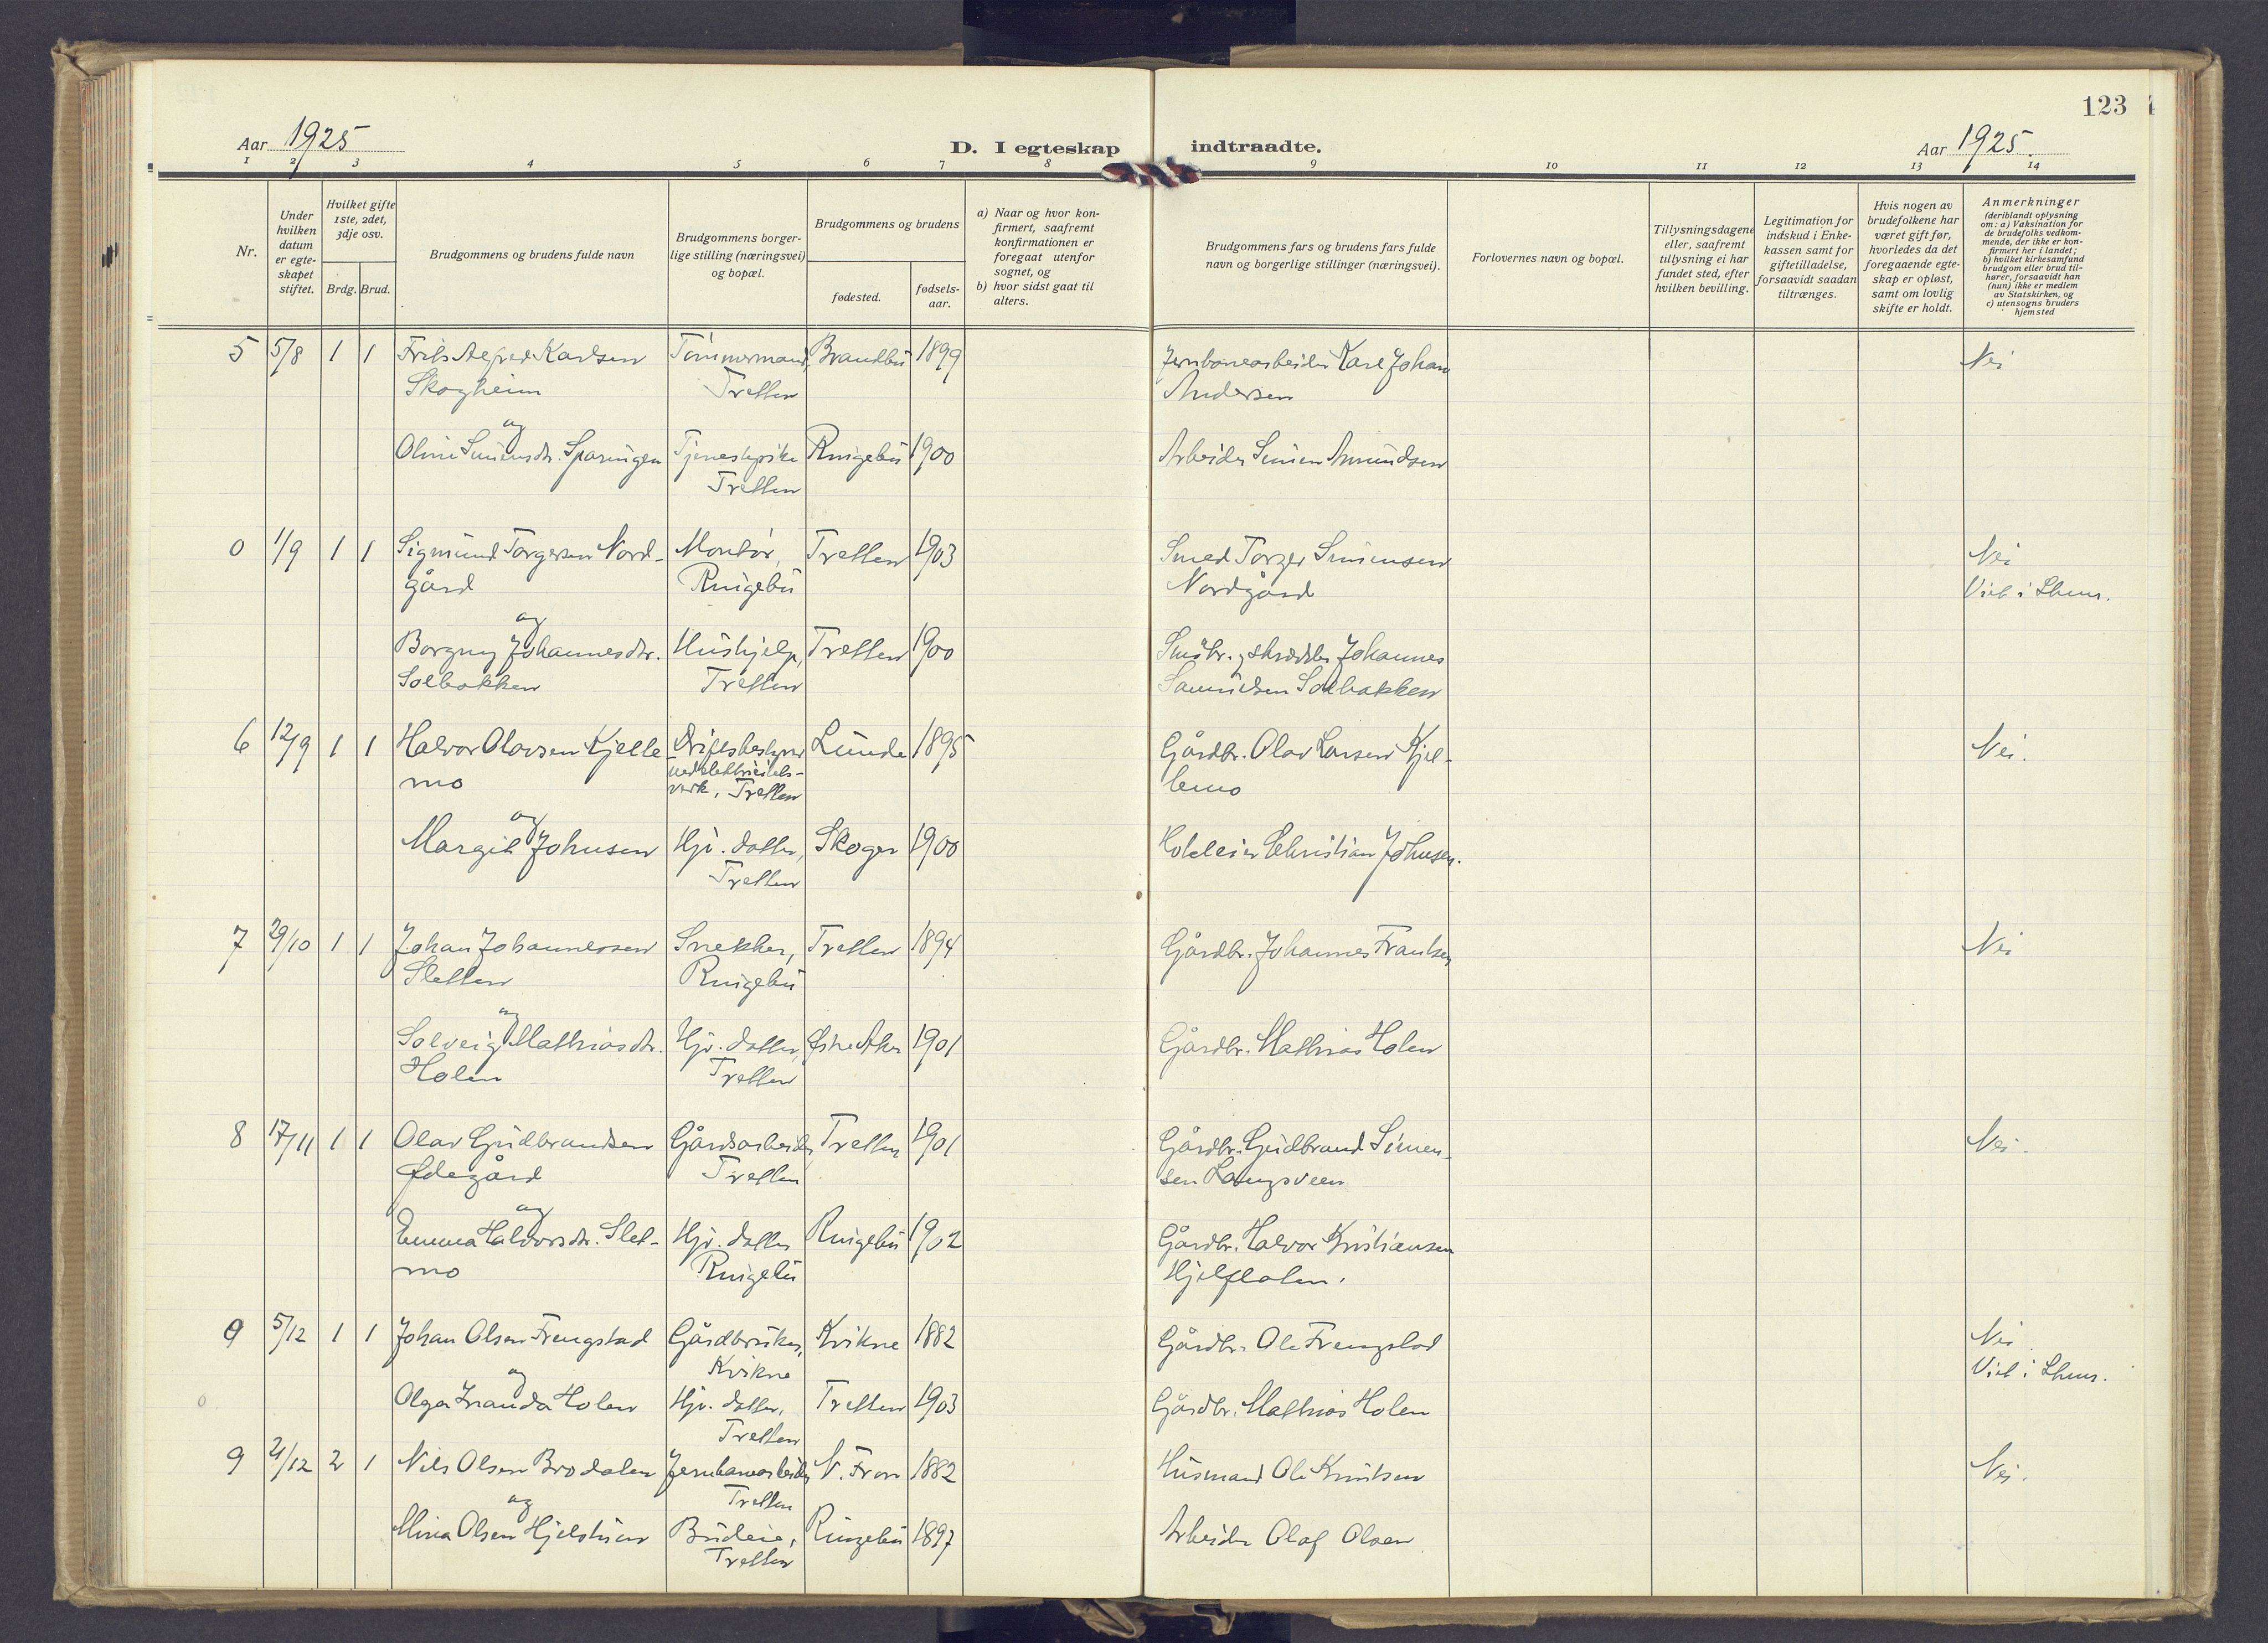 123
Aar 1925
D. I egteskap indtraadte.
Aar 1925.
1 2 3 4 5 6 7 8 9 10 11 12 13 14
Nr.
Under hvilken datum er egteskapet stiftet.
Hvilket gifte 1ste, 2det, 3dje osv.
Brdg. Brud.
Brudgommens og brudens fulde navn
Brudgommens borgerlige stilling (næringsvei) og bopæl.
Brudgommens og brudens
fødested.
fødselsaar.
a) Naar og hvor konfirmert, saafremt konfirmationen er foregaat utenfor sognet, og
b) hvor sidst gaat til alters.
Brudgommens fars og brudens fars fulde navn og borgerlige stillinger (næringsvei).
Forlovernes navn og bopæl.
Tillysningsdagene eller, saafremt tillysning ei har fundet sted, efter hvilken bevilling.
Legitimation for indskud i Enkekassen samt for giftetilladelse, forsaavidt saadan tiltrænges.
Hvis nogen av brudefolkene har været gift før, hvorledes da det foregaaende egteskap er opløst, samt om lovlig skifte er holdt.
Anmerkninger
(deriblandt oplysning om: a) Vaksination for de brudefolks vedkommende, der ikke er konfirmert her i landet;
b) hvilket kirkesamfund brudgom eller brud tilhører, forsaavidt han (hun) ikke er medlem av Statskirken, og
c) utensogns bruders hjemsted
5 5/8 1 1 Frits Alfred Karlsen Tømmermand, Brandbu 1899 Jernbanearbeider Karl Johan Nei
Skogheim Tretten Andersen
og
Oline Simensdtr. Sparingen Tjenestepike Ringebu 1900 Arbeider Simen Amundsen
Tretten
0 1/9 1 1 Sigmund Torgersen Nord- Montør, Tretten 1903 Smed Torger Simensen Nei
gård Ringebu Nordgård Viet i Lhmr.
og
Borgny Johannesdtr. Hushjelp, Tretten 1900 Småbr. og skrædder Johannes
Solbakken Tretten Samuelsen Solbakken
6 12/9 1 1 Halvor Olavsen Kjelle Driftsbestyrer Lunde 1895 Gårdbr. Olav Larsen Kjel- Nei.
mo ved elektricitets- lemo
verk, Tretten
og
Margit Johnsen Hjv. datter, Skoger 1900 Hoteleier Christian Johnsen.
Tretten
7 29/10 1 1 Johan Johannessen Snekker, Tretten 1894 Gårdbr. Johannes Frantsen Nei
Sletten Ringebu
og
Solveig Mathiasdtr. Hjv. datter, Østre Aker 1901 Gårdbr. Mathias Holen
Holen Tretten
8 17/11 1 1 Olav Gudbrandsen Gårdsarbeider Tretten 1901 Gårdbr. Gudbrand Simen- Nei.
Ødegård Tretten sen Langsveen
og
Emma Halvorsdtr. Slet- Hjv. datter Ringebu 1902 Gårdbr. Halvor Kristiansen
mo Ringebu Hjelflaten.
0 5/12 1 1 Johan Olsen Frengstad Gårdbruker, Kvikne 1882 Gårdbr. Ole Frengstad Nei
Kvikne Viet i Lhmr.
og
Olga Iranda Holen Hjv. datter, Tretten 1903 Gårdbr. Mathias Holen
Tretten
9 21/12 2 1 Nils Olsen Brodalen Jernbanearbeider N. Fron 1882 Husmand Ole Knutsen Nei.
Tretten
og
Mina Olsen Hjelstuen Budeie, Ringebu 1897 Arbeider Olaf Olsen
Tretten